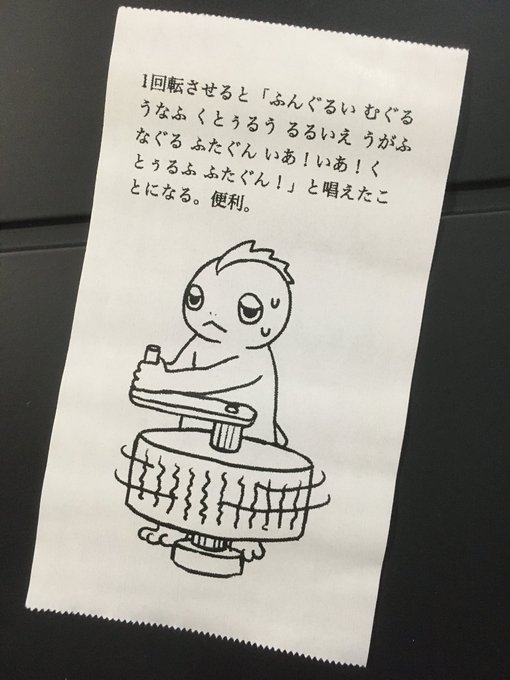 1回転させると「ふんぐるい むぐる
うなふ くとぅるう るるいえ うがふ
なぐる ふたぐん いあ！いあ！く
とぅるふ ふたぐん！」と唱えたこ
とになる。便利。